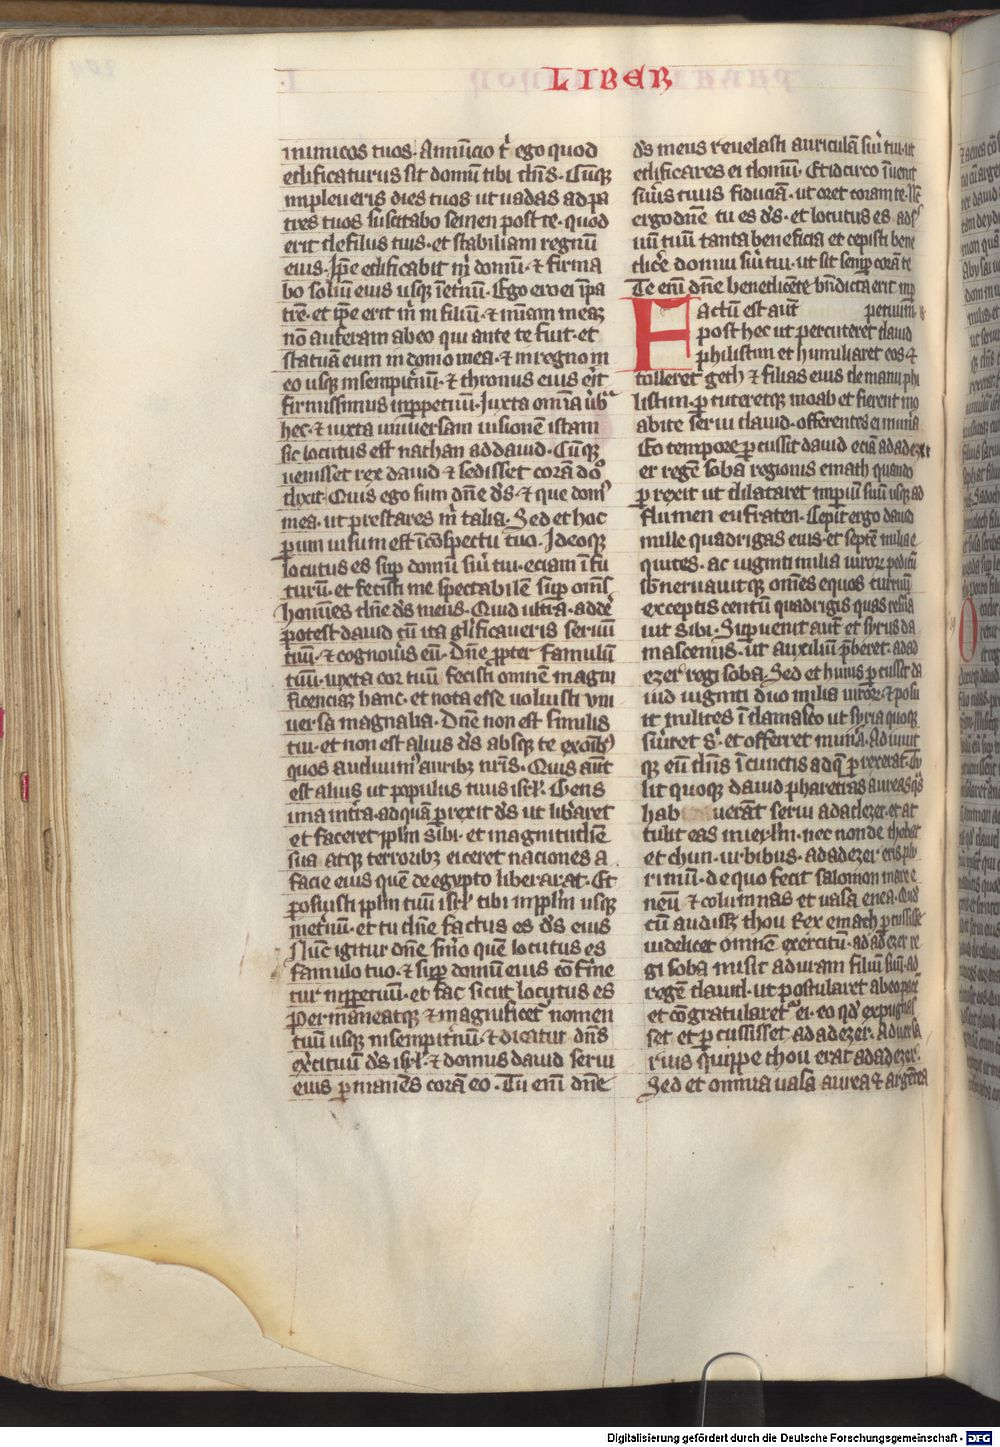 LIBER
inimicos tuos. Annūcio t̉ ego quod
edificaturus sit domū tibi dn̄s. Cūqꝫ
impleueris dies tuos ut uadas ad pa
tres tuos suscitabo semen post te. quod
erit de filiis tuis. et stabiliam regnū
eius. Ip̄e edificabit m̉ domū. ⁊ firma
bo soliū eius usqꝫ ī et̉nū. Ego ero ei ī pa
trē. et ip̄e erit m̉ in filiū. ⁊ mīam meā
nō auferam ab eo qui ante te fuit. et
statuā eum in domo mea. ⁊ in regno m
eo usqꝫ in sempit̉nū. ⁊ thronus eius erit
firmissimus in ꝑpetuū. Iuxta omīa ūba
hec. ⁊ iuxta uniuersam uisionem istam
sic locutus est nathan ad dauid. Cūqꝫ
uenisset rex dauid ⁊ sedisset corā dn̄o
dixit. Quis ego sum dn̄e ds̄. ⁊ que domꝰ
mea. ut prestares m̉ talia. Sed et hoc
ꝑum uisum est ī cōspectu tuo. Ideoqꝫ
locutus es suꝑ domū sui tui. eciam ī fu
turū. et fecisti me spectabilē suꝑ om̄s
homines dn̄e ds̄ meus. Quid ultra adde̓
potest dauid cū ita gl̓ificaueris seruū
tuū. ⁊ cognouis eū. Dn̄e ꝓpter famulū
tuū. iuxta cor tuū fecisti omnem magni
ficenciā hanc. et nota esse uoluisti uni
uersa magnalia. Dn̄e non est similis
tui. et non est alius ds̄ absqꝫ te ex oīb̓
quos audiuimꝰ auribꝫ nr̄is. Quis aūt
est alius ut populus tuus isr̄l. Gens
una in t̉ra. ad quā ꝑrexit ds̄ ut lib̓aret
et faceret ppl̄m sibi. et magnitudīe
sua atqꝫ terroribꝫ eiceret naciones a
facie eius quē de egypto liberarat. Et
posuisti ppl̄m tuū isr̄l tibi in ppl̄m usqꝫ
in et̉nū. et tu dn̄e factus es ds̄ eius
Nūc igitur dn̄e sm̄o quē locutus es
famulo tuo. ⁊ suꝑ domū eius cōfirme
tur in ꝑpetuū. et fac sicut locutus es
Permaneatqꝫ ⁊ magnificet̉ nomen
tuū usqꝫ in sempit̉nū. ⁊ dicatur dn̄s
ex̓cituū ds̄ isr̄l. ⁊ domus dauid serui
eius ꝑmanēs corā eo. Tu enī dn̄e
ds̄ meus reuelasti auriculā sui tui. ut
edificares ei domū. Et idcirco īuenit
suus tuus fiduciā. ut oret coram te. Nc̄
ergo dn̄e tu es ds̄. et locutus es ad s̓
uū tuū tanta beneficia et cepisti bene
dice̓ domui sui tui. ut sit semꝑ corā te
Te enī dn̄e benedicēte bn̄dicta erit in ꝑ
petuum.
Factū est aūt
post hec ut percuteret dauid
philistim et humiliaret eos ⁊
tolleret geth ⁊ filias eius de manu phi
listim. ꝑcuteretqꝫ moab et fierent mo
abite serui dauid. offerentes ei mun̓a
Eo tempore ꝑcussit dauid eciā adadez
er regē soba regionis emath quando
ꝑrexit ut dilataret impiū suū usqꝫ ad
flumen eufraten. Cepit ergo dauid
mille quadrigas eius. et septē milia e
quites. ac uiginti milia uiroꝝ peditū
sb̄neruauitqꝫ om̄es equos curruū
exceptis centū quadrigis quas resuā
uit sibi. Suꝑuenit aūt et syrus da
mascenus. ut auxiliū p̄beret. adad
ezer regi soba. Sed et huius ꝑcussit da
uid uiginti duo milia uiroꝝ. ⁊ posu
it milites ī damasco ut syria quoqꝫ
suiret sꝰ. et offerret mun̓a. Adiuuit
qꝫ eū dn̄s ī cunctis ad qͣ ꝑrexerat. Tu
lit quoqꝫ dauid pharetras aureas qͣs
hab uerāt serui adadezer. et at
tulit eas in ierl̄m. nec non de thebat
et chun. urbibus. adadezer eris plu
rimū. de quo fecit salomon mare e
neū ⁊ columnas et uasa enea. Quod
cū audissꝫ thou Rex emach ꝑcussisse
uidelicet omnē exercitū. adadezer re
gi soba misit aduram filiū suū. ad
regē dauid. ut postularet ab eo pacē
et cōgratularet̉ ei. eo qd̓ expugnas
set et ꝑcussisset adadezer. Aduersa
rius quippe thou erat adadezer.
Sed et omnia uasa aurea ⁊ argētea
Digitalisierung gefördert durch die Deutsche Forschungsgemeinschaft - DFG